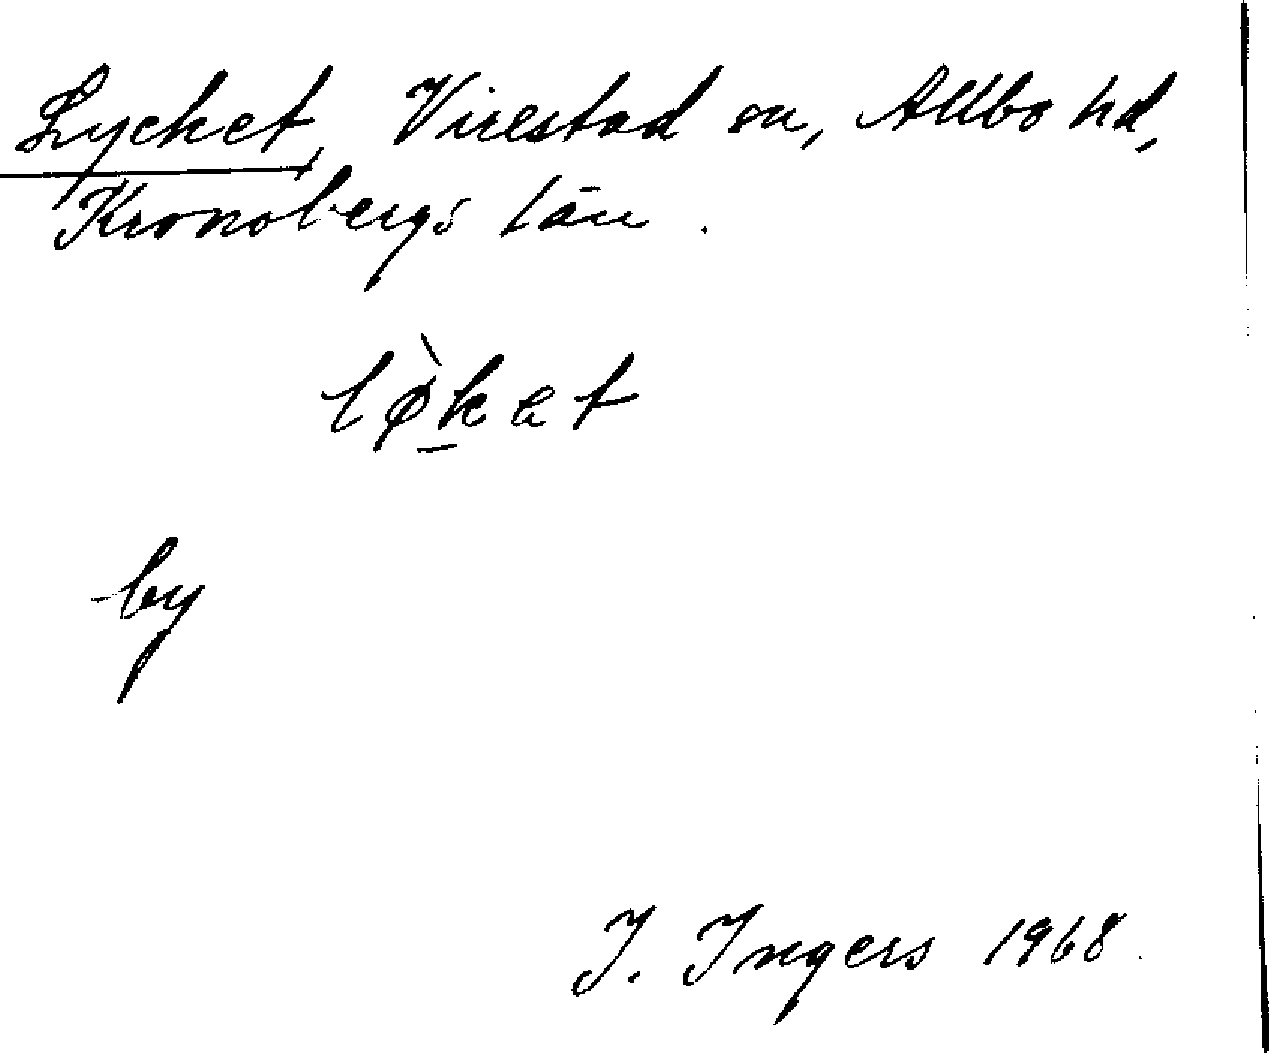 Lycket, Virestad sn, Allbo hd,
Kronobergs län.
lø̀k̲et
by
I. Ingers 1968.